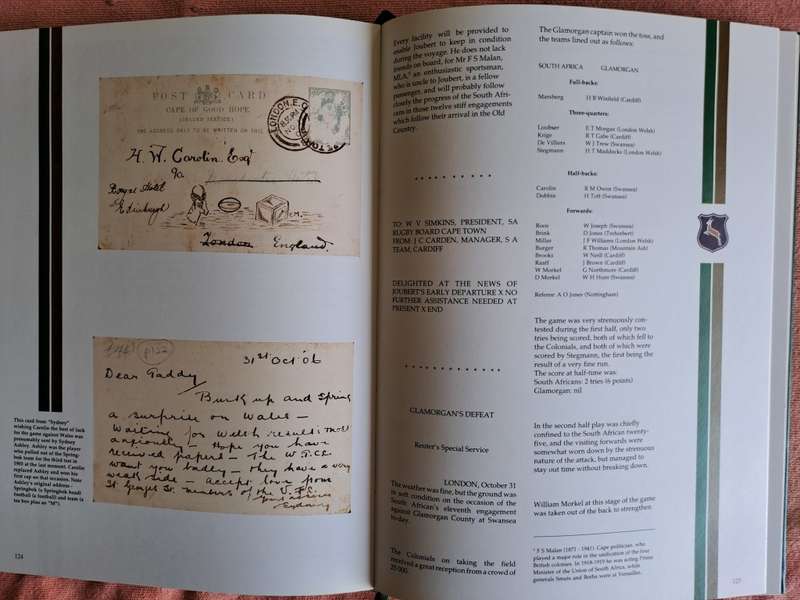 POST CARD
CAPE OF GOOD HOPE
THE ADDRESS ONLY TO BE WRITTEN ON THIS SIDE
LONDON. E.C
H. W. Carolin. Esqr
c/o
Edinburgh
London England.
31st Oct '06
Dear Paddy
Buck up and Spring
a surprise on Wales —
waiting for Welsh result: most
anxiously — Hope you have
received papers — The
want you badly — they have a very
weak side — accept love from
St. Georges St. members of the
Sydney
This card from "Sydney"
wishing Carolin the best of luck
for the game against Wales was
presumably sent by Sydney
Ashley. Ashley was the player
who pulled out of the Spring-
bok team for the third test in
1903 at the last moment. Carolin
replaced Ashley and won his
first cap on that occasion. Note
Ashley's original address –
Springbok (a Springbok head)
football (a football) and team (a
tea box plus an "M").
124
Every facility will be provided to
enable Joubert to keep in condition
during the voyage. He does not lack
friends on board, for Mr F S Malan,
MLA, an enthusiastic sportsman,
who is uncle to Joubert, is a fellow
passenger, and will probably follow
closely the progress of the South Afri-
cans in those twelve stiff engagements
which follow their arrival in the Old
Country.
TO: W V SIMKINS, PRESIDENT, SA
RUGBY BOARD CAPE TOWN
FROM: J C CARDEN, MANAGER, S A
TEAM, CARDIFF
DELIGHTED AT THE NEWS OF
JOUBERT'S EARLY DEPARTURE X NO
FURTHER ASSISTANCE NEEDED AT
PRESENT X END
GLAMORGAN'S DEFEAT
Reuter's Special Service
LONDON, October 31
The weather was fine, but the ground was
in soft condition on the occasion of the
South African's eleventh engagement
against Glamorgan County at Swansea
to-day.
The Colonials on taking the field
received a great reception from a crowd of
25 000.
The Glamorgan captain won the toss, and
the teams lined out as follows:
SOUTH AFRICA GLAMORGAN
Full-backs:
Marsberg H B Winfield (Cardiff)
Three-quarters:
Loubser E T Morgan (London Welsh)
Krige R T Gabe (Cardiff)
De Villiers W J Trew (Swansea)
Stegmann H T Maddocks (London Welsh)
Half-backs:
Carolin R M Owen (Swansea)
Dobbin H Tott (Swansea)
Forwards:
Roos W Joseph (Swansea)
Brink D Jones (Treherbert)
Millar J F Williams (London Welsh)
Burger R Thomas (Mountain Ash)
Brooks W Neill (Cardiff)
Raaff J Brown (Cardiff)
W Morkel G Northmore (Cardiff)
D Morkel W H Hunt (Swansea)
Referee: A O Jones (Nottingham)
The game was very strenuously con-
tested during the first half, only two
tries being scored, both of which fell to
the Colonials, and both of which were
scored by Stegmann, the first being the
result of a very fine run.
The score at half-time was:
South Africans: 2 tries (6 points)
Glamorgan: nil
In the second half play was chiefly
confined to the South African twenty-
five, and the visiting forwards were
somewhat worn down by the strenuous
nature of the attack, but managed to
stay out time without breaking down.
William Morkel at this stage of the game
was taken out of the back to strengthen.
F S Malan (1871 - 1941). Cape politician, who
played a major role in the unification of the four
British colonies. In 1918-1919 he was acting Prime
Minister of the Union of South Africa, while
generals Smuts and Botha were at Versailles.
125